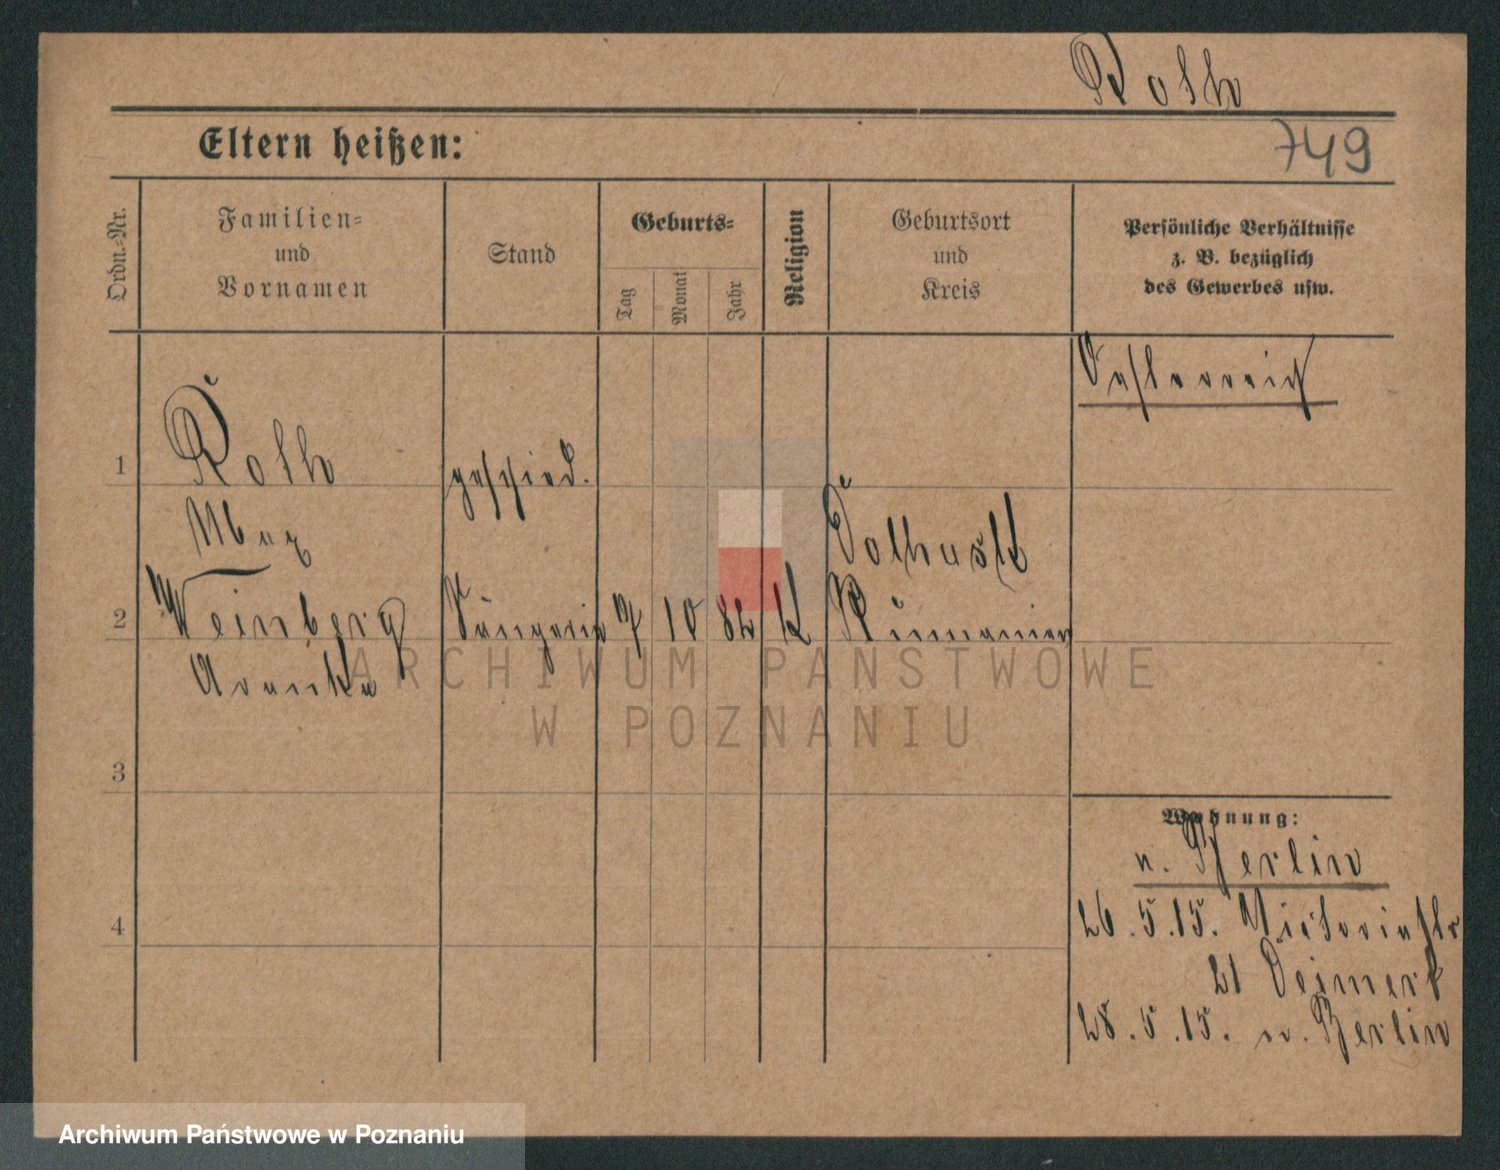 Roth
749
Eltern heißen:
Ordn.-Nr.
Familien-
und
Vornamen
Stand
Geburts-
Tag
Monat
Jahr
Religion
Geburtsort
und
Kreis
Persönliche Verhältnisse
z. B. bezüglich
des Gewerbes usw.
Oesterreich
1
Roth
geschied.
Max
2
Weinberg
Sängerin 7 10 82 K Rumänien
Aranka
3
4
Wohnung:
n. Berlin
26.5.15. Victoriastr
21
28.5.15. n. Berlin
ARCHIWUM PAŃSTWOWE
W POZNANIU
Archiwum Państwowe w Poznaniu